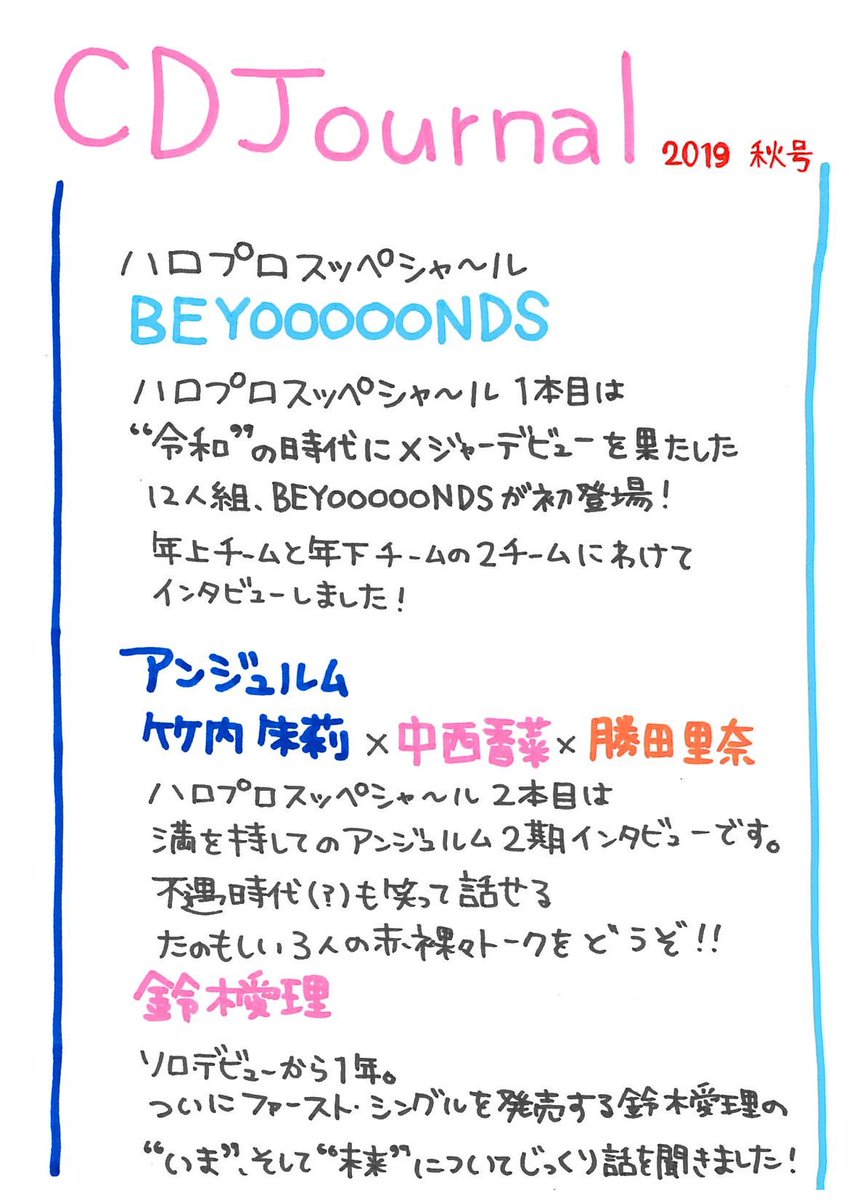 CDJournal
2019 秋号
ハロプロスッペシャ〜ル
BEYOOOOONDS
ハロプロスッペシャ〜ル 1本目は
“令和”の時代にメジャーデビューを果たした
12人組、BEYOOOOONDSが初登場!
年上チームと年下チームの2チームにわけて
インタビューしました!
アンジュルム
竹内朱莉×中西香菜×勝田里奈
ハロプロスッペシャ〜ル 2本目は
満を持してのアンジュルム2期インタビューです。
不遇時代(?)も笑って話せる
たのもしい3人の赤裸々トークをどうぞ!!
鈴木愛理
ソロデビューから1年。
ついにファースト・シングルを発売する鈴木愛理の
“いま”、そして“未来”についてじっくり話を聞きました!